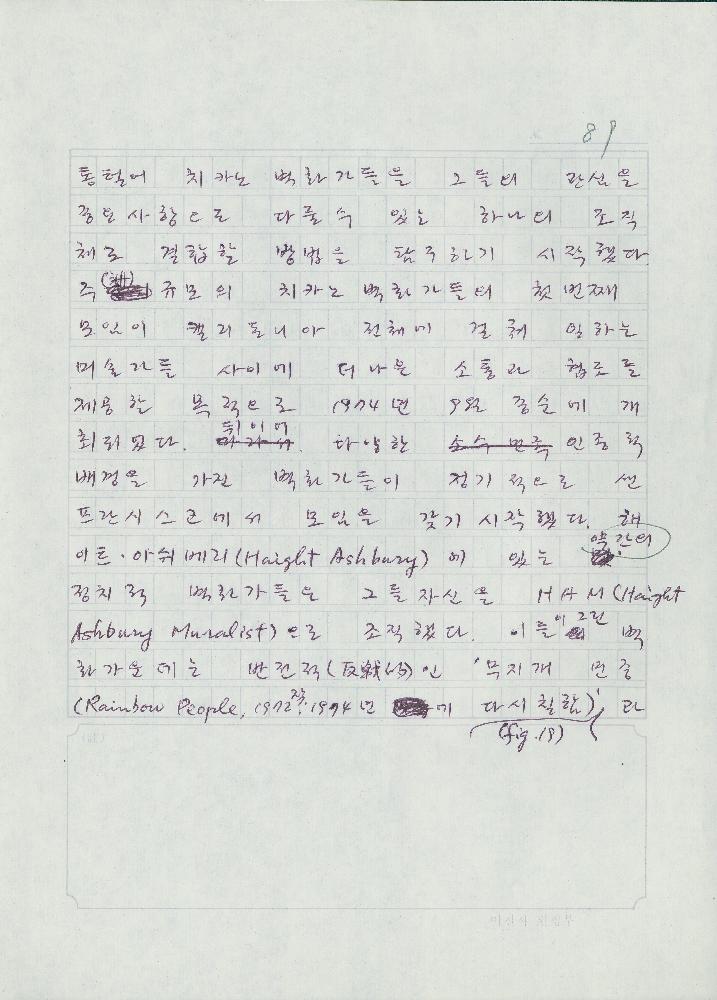 89
통털어 치카노 벽화가들을 그들의 관심을
중요사항으로 다룰수 있는 하나의 조직
체로 결합할 방법을 탐구하기 시작했다.
주(州) 규모의 치카노 벽화가들의 첫번째
모임이 캘리포니아 전체에 걸쳐 일하는
미술가들 사이에 더나은 소통과 협조를
제공할 목적으로 1974년 9월 중순에 개
최되었다. 뒤이어 다양한 소수 민족 인종적
배경을 가진 벽화가들이 정기적으로 샌
프란시스코에서 모임을 갖기 시작했다. 해
이트·아쉬베리(Haight Ashbury)에 있는 약간의
정치적 벽화가들은 그들자신을 HAM(Haight
Ashbury Muralist)으로 조직했다. 이들이 그린 벽
화가운데는 반전적(反戰的)인 '무지개 민중
(Rainbow People, 1972작, 1974년에 다시칠함)' 과
(fig.19)
미진사 편집부